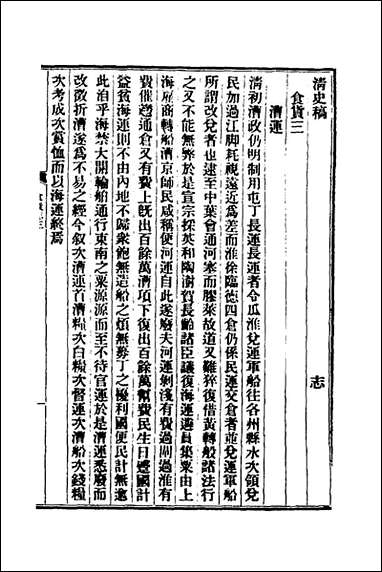 清史稿
志
食貨三
漕運
清初漕政仍明制用屯丁長運長運者令瓜淮兌運軍船往各州縣水次領兌
民加過江腳耗視遠近爲差而淮徐臨德四倉仍係民運交倉者並兌運軍船
所謂改兌者也逮至中葉會通河塞而膠萊故道又難猝復借黃轉般諸法行
之又不能無弊於是宣宗採英和陶澍賀長齡諸臣議復海運遴員集粟由上
海雇商轉船漕京師民咸稱便河運自此遂廢夫河運剝淺有費過閘過淮有
費催趲通倉又有費上旣出百餘萬漕項下復出百餘萬幫費民生日蹙國計
益貧海運則不由內地不歸衆飽無造船之煩無募丁之擾利國便民計無逾
此洎乎海禁大開輪船通行東南之粟源源而至不待官運於是漕運悉廢而
改徵折漕遂爲不易之經今敘次漕運首漕糧次白糧次督運次漕船次錢糧
次考成次賞恤而以海運終焉
一